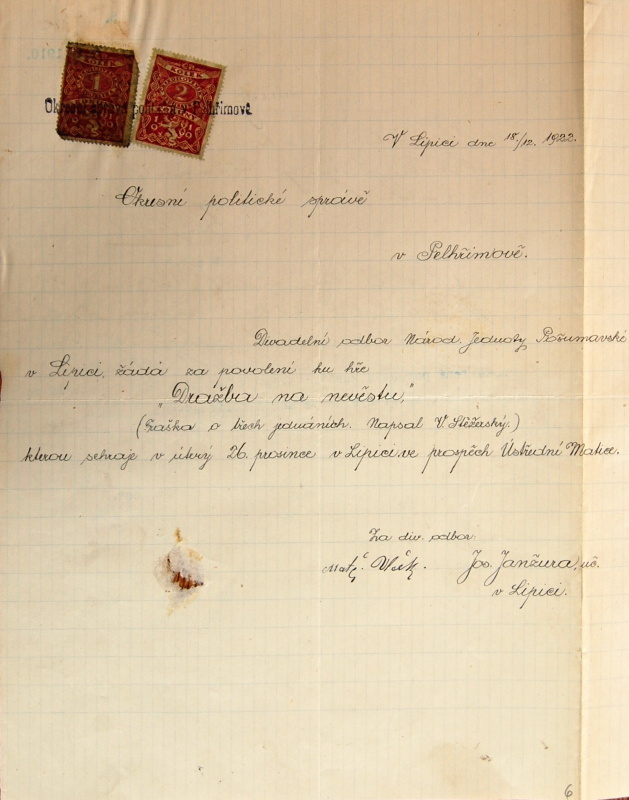 KOLEK
1
ČR
KOLEK
2
KORUNY
19 19
Okresní správa politická v Pelhřimově
V Lipici dne 18./12. 1922.
Okresní politické správě
v Pelhřimově.
Divadelní odbor Národ. Jednoty Pošumavské
v Lipici, žádá za povolení ku hře
„Dražba na nevěstu,"
(Fraška o třech jednáních. Napsal V. Štěžerský.)
kterou sehraje v úterý 26. prosince v Lipici, ve prospěch Ústřední Matice.
Za div. odbor:
Jos. Janžura, uč.
v Lipici.
6